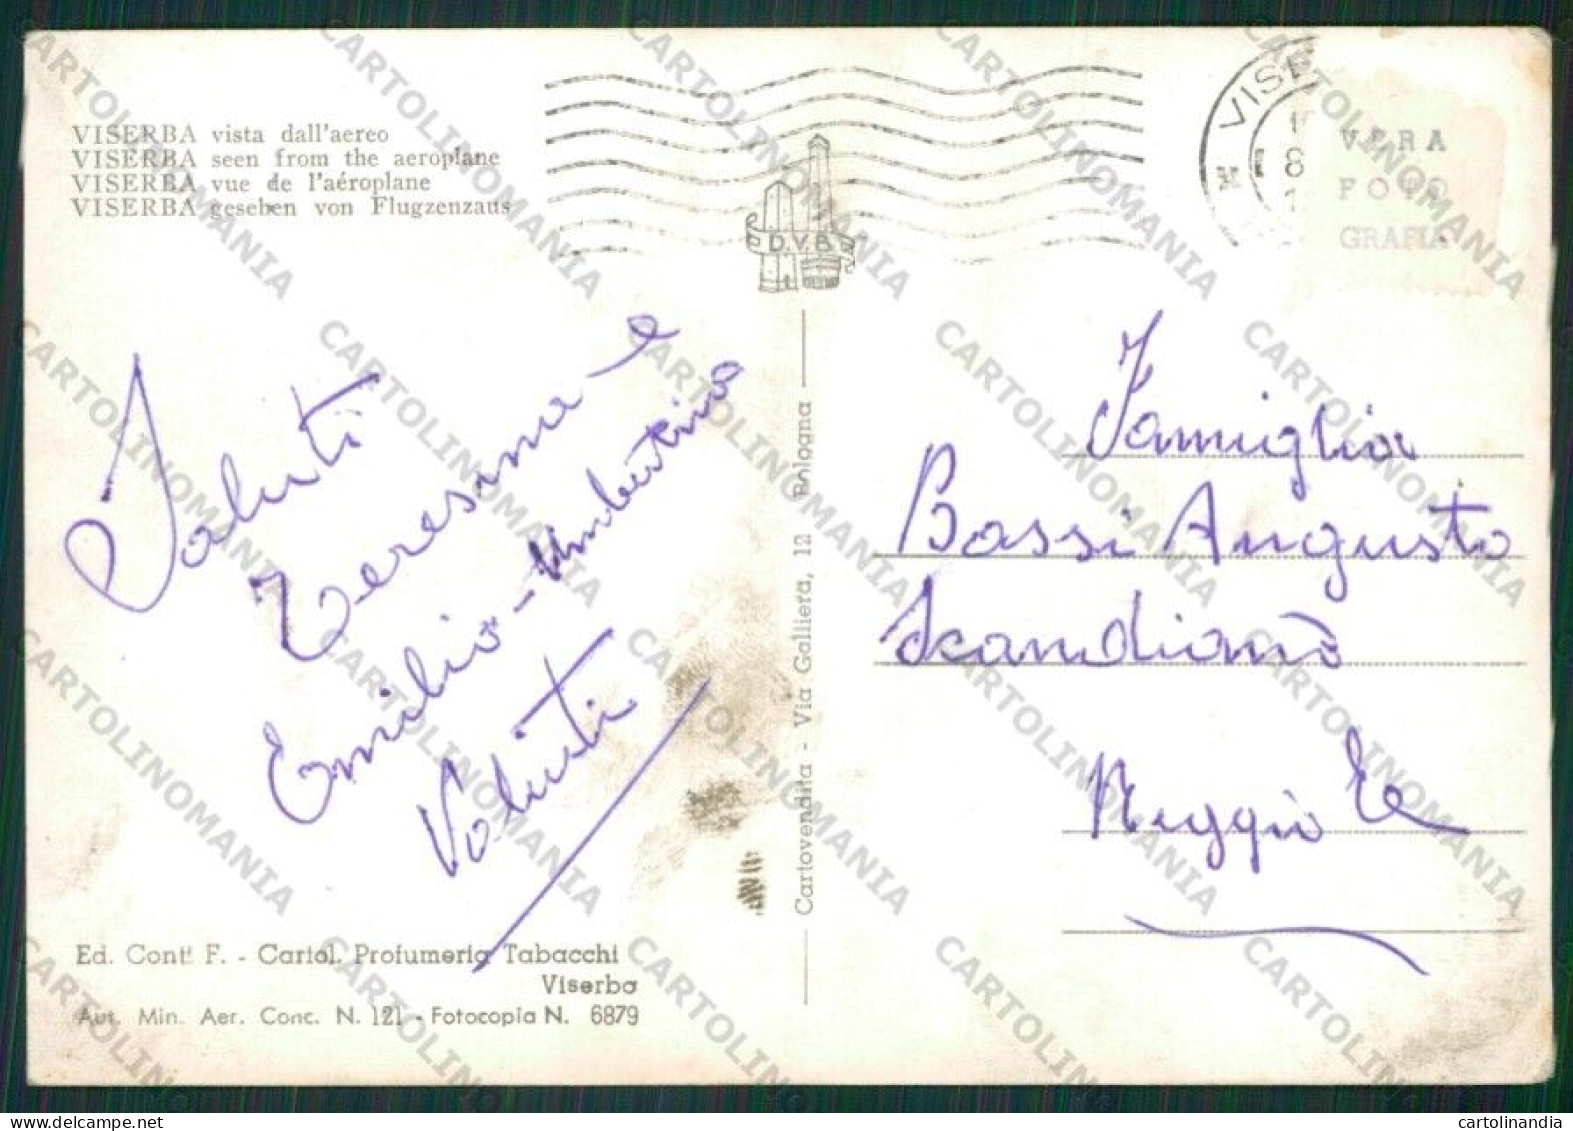 VISERBA vista dall'aereo
VISERBA seen from the aeroplane
VISERBA vue de l'aéroplane
VISERBA gesehen von Flugzenzaus
D.V.B.
VISE
8
VERA
FOTO
GRAFIA
Saluti
Teresina e
Emilio - Umbertina
Valenti
Famiglia
Bassi Augusto
Scandiano
Reggio E
Cartovendita - Via Galliera, 12 Bologna
Ed. Conti F. - Cartol. Profumeria Tabacchi
Viserba
Aut. Min. Aer. Conc. N. 121 - Fotocopia N. 6879
CARTOLINOMANIA
cartolinandia
delcampe.net